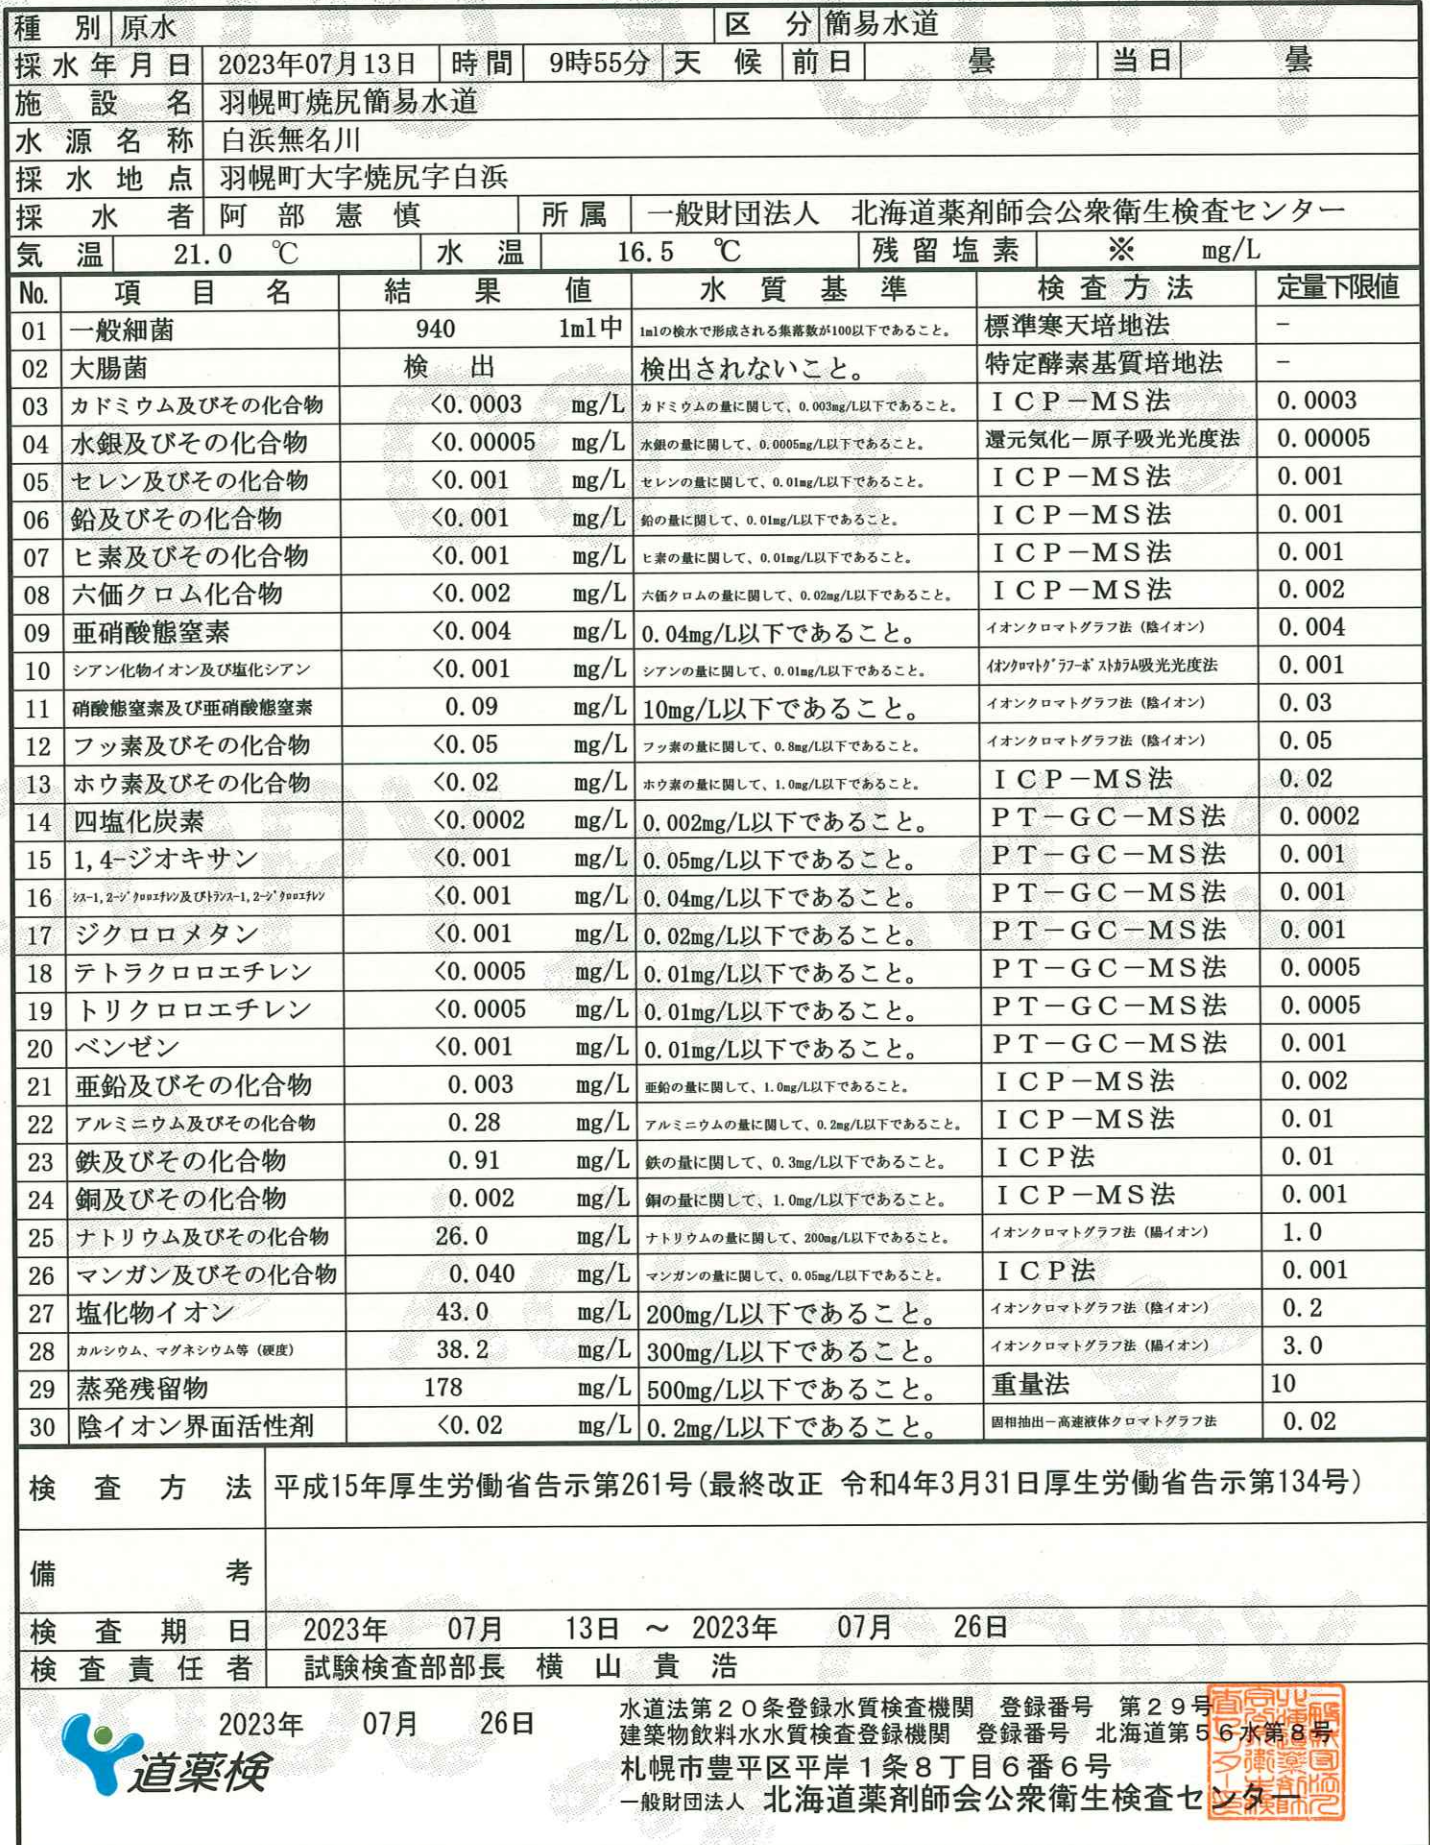 種別 原水 区分 簡易水道
採水年月日 2023年07月13日 時間 9時55分 天候 前日 曇 当日 曇
施設名 羽幌町焼尻簡易水道
水源名称 白浜無名川
採水地点 羽幌町大字焼尻字白浜
採水者 阿部憲慎 所属 一般財団法人 北海道薬剤師会公衆衛生検査センター
気温 21.0 ℃ 水温 16.5 ℃ 残留塩素 ※ mg/L
No. 項目名 結果値 水質基準 検査方法 定量下限値
01 一般細菌 940 1ml中 1mlの検水で形成される集落数が100以下であること。 標準寒天培地法 －
02 大腸菌 検出 検出されないこと。 特定酵素基質培地法 －
03 カドミウム及びその化合物 <0.0003 mg/L カドミウムの量に関して、0.003mg/L以下であること。 ICP－MS法 0.0003
04 水銀及びその化合物 <0.00005 mg/L 水銀の量に関して、0.0005mg/L以下であること。 還元気化－原子吸光光度法 0.00005
05 セレン及びその化合物 <0.001 mg/L セレンの量に関して、0.01mg/L以下であること。 ICP－MS法 0.001
06 鉛及びその化合物 <0.001 mg/L 鉛の量に関して、0.01mg/L以下であること。 ICP－MS法 0.001
07 ヒ素及びその化合物 <0.001 mg/L ヒ素の量に関して、0.01mg/L以下であること。 ICP－MS法 0.001
08 六価クロム化合物 <0.002 mg/L 六価クロムの量に関して、0.02mg/L以下であること。 ICP－MS法 0.002
09 亜硝酸態窒素 <0.004 mg/L 0.04mg/L以下であること。 イオンクロマトグラフ法（陰イオン） 0.004
10 シアン化物イオン及び塩化シアン <0.001 mg/L シアンの量に関して、0.01mg/L以下であること。 ｲｵﾝｸﾛﾏﾄｸﾞﾗﾌｰﾎﾟｽﾄｶﾗﾑ吸光光度法 0.001
11 硝酸態窒素及び亜硝酸態窒素 0.09 mg/L 10mg/L以下であること。 イオンクロマトグラフ法（陰イオン） 0.03
12 フッ素及びその化合物 <0.05 mg/L フッ素の量に関して、0.8mg/L以下であること。 イオンクロマトグラフ法（陰イオン） 0.05
13 ホウ素及びその化合物 <0.02 mg/L ホウ素の量に関して、1.0mg/L以下であること。 ICP－MS法 0.02
14 四塩化炭素 <0.0002 mg/L 0.002mg/L以下であること。 PT－GC－MS法 0.0002
15 1,4-ジオキサン <0.001 mg/L 0.05mg/L以下であること。 PT－GC－MS法 0.001
16 ｼｽ-1,2-ｼﾞｸﾛﾛｴﾁﾚﾝ及びﾄﾗﾝｽ-1,2-ｼﾞｸﾛﾛｴﾁﾚﾝ <0.001 mg/L 0.04mg/L以下であること。 PT－GC－MS法 0.001
17 ジクロロメタン <0.001 mg/L 0.02mg/L以下であること。 PT－GC－MS法 0.001
18 テトラクロロエチレン <0.0005 mg/L 0.01mg/L以下であること。 PT－GC－MS法 0.0005
19 トリクロロエチレン <0.0005 mg/L 0.01mg/L以下であること。 PT－GC－MS法 0.0005
20 ベンゼン <0.001 mg/L 0.01mg/L以下であること。 PT－GC－MS法 0.001
21 亜鉛及びその化合物 0.003 mg/L 亜鉛の量に関して、1.0mg/L以下であること。 ICP－MS法 0.002
22 アルミニウム及びその化合物 0.28 mg/L アルミニウムの量に関して、0.2mg/L以下であること。 ICP－MS法 0.01
23 鉄及びその化合物 0.91 mg/L 鉄の量に関して、0.3mg/L以下であること。 ICP法 0.01
24 銅及びその化合物 0.002 mg/L 銅の量に関して、1.0mg/L以下であること。 ICP－MS法 0.001
25 ナトリウム及びその化合物 26.0 mg/L ナトリウムの量に関して、200mg/L以下であること。 イオンクロマトグラフ法（陽イオン） 1.0
26 マンガン及びその化合物 0.040 mg/L マンガンの量に関して、0.05mg/L以下であること。 ICP法 0.001
27 塩化物イオン 43.0 mg/L 200mg/L以下であること。 イオンクロマトグラフ法（陰イオン） 0.2
28 カルシウム、マグネシウム等（硬度） 38.2 mg/L 300mg/L以下であること。 イオンクロマトグラフ法（陽イオン） 3.0
29 蒸発残留物 178 mg/L 500mg/L以下であること。 重量法 10
30 陰イオン界面活性剤 <0.02 mg/L 0.2mg/L以下であること。 固相抽出－高速液体クロマトグラフ法 0.02
検査方法 平成15年厚生労働省告示第261号(最終改正 令和4年3月31日厚生労働省告示第134号)
備考
検査期日 2023年 07月 13日 ～ 2023年 07月 26日
検査責任者 試験検査部部長 横山貴浩
2023年 07月 26日
道薬検
水道法第20条登録水質検査機関 登録番号 第29号
建築物飲料水水質検査登録機関 登録番号 北海道第56水第8号
札幌市豊平区平岸1条8丁目6番6号
一般財団法人 北海道薬剤師会公衆衛生検査センター